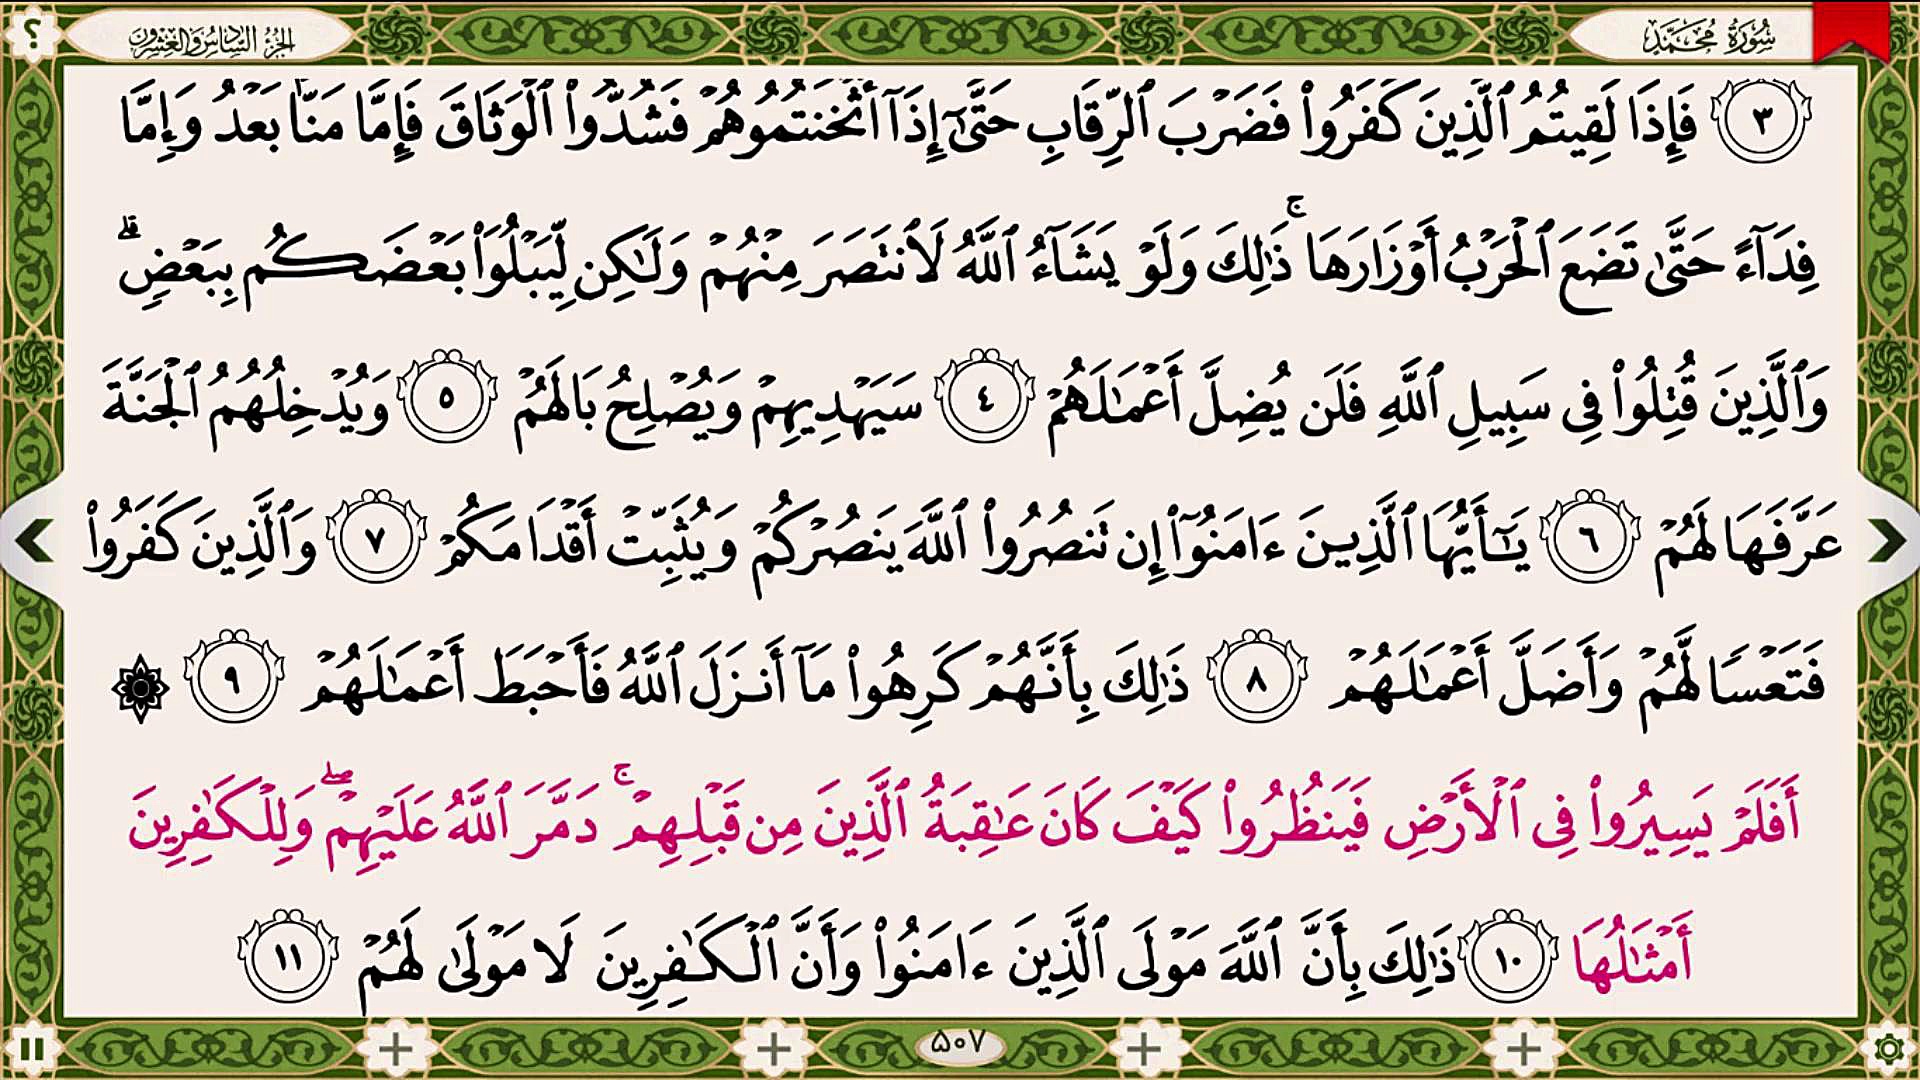 سُورَةُ مُحَمَّدٍ
الجُزءُ السَّادِسُ وَالعِشرُونَ
؟
٣ فَإِذَا لَقِيتُمُ ٱلَّذِينَ كَفَرُوا۟ فَضَرْبَ ٱلرِّقَابِ حَتَّىٰٓ إِذَآ أَثْخَنتُمُوهُمْ فَشُدُّوا۟ ٱلْوَثَاقَ فَإِمَّا مَنًّۢا بَعْدُ وَإِمَّا
فِدَآءً حَتَّىٰ تَضَعَ ٱلْحَرْبُ أَوْزَارَهَا ۚ ذَٰلِكَ وَلَوْ يَشَآءُ ٱللَّهُ لَٱنتَصَرَ مِنْهُمْ وَلَـٰكِن لِّيَبْلُوَا۟ بَعْضَكُم بِبَعْضٍ ۗ
وَٱلَّذِينَ قُتِلُوا۟ فِى سَبِيلِ ٱللَّهِ فَلَن يُضِلَّ أَعْمَـٰلَهُمْ ٤ سَيَهْدِيهِمْ وَيُصْلِحُ بَالَهُمْ ٥ وَيُدْخِلُهُمُ ٱلْجَنَّةَ
عَرَّفَهَا لَهُمْ ٦ يَـٰٓأَيُّهَا ٱلَّذِينَ ءَامَنُوٓا۟ إِن تَنصُرُوا۟ ٱللَّهَ يَنصُرْكُمْ وَيُثَبِّتْ أَقْدَامَكُمْ ٧ وَٱلَّذِينَ كَفَرُوا۟
فَتَعْسًا لَّهُمْ وَأَضَلَّ أَعْمَـٰلَهُمْ ٨ ذَٰلِكَ بِأَنَّهُمْ كَرِهُوا۟ مَآ أَنزَلَ ٱللَّهُ فَأَحْبَطَ أَعْمَـٰلَهُمْ ٩ ۞
أَفَلَمْ يَسِيرُوا۟ فِى ٱلْأَرْضِ فَيَنظُرُوا۟ كَيْفَ كَانَ عَـٰقِبَةُ ٱلَّذِينَ مِن قَبْلِهِمْ ۚ دَمَّرَ ٱللَّهُ عَلَيْهِمْ ۖ وَلِلْكَـٰفِرِينَ
أَمْثَـٰلُهَا ١٠ ذَٰلِكَ بِأَنَّ ٱللَّهَ مَوْلَى ٱلَّذِينَ ءَامَنُوا۟ وَأَنَّ ٱلْكَـٰفِرِينَ لَا مَوْلَىٰ لَهُمْ ١١
۵۰۷